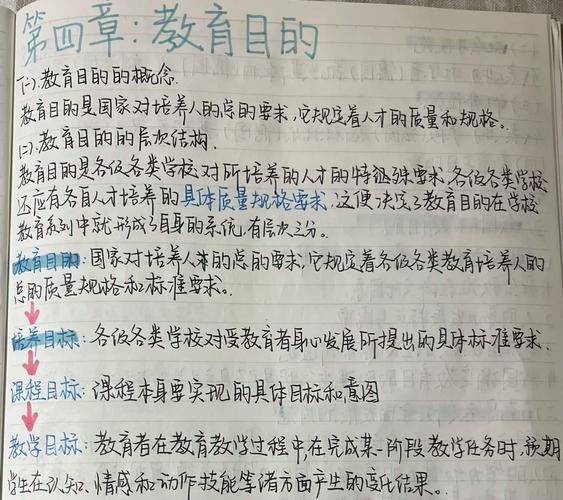 第四章：教育目的
(一).教育目的的概念.
教育目的是国家对培养人的总的要求,它规定着人才的质量和规格。
(二).教育目的的层次结构.
教育目的是各级各类学校对所培养的人才的特征殊要求.各级各类学校
还应有各自人才培养的具体质量规格要求.这便决定了教育目的在学校
教育系列中就形成了自身的系统,有层次之分。
教育目的:国家对培养人才的总的要求,它规定着各级各类教育培养人的
总的质量规格和标准要求。
培养目标:各级各类学校对受教育者身心发展所提出的具体标准要求.
课程目标:课程本身要实现的具体目标和意图
教学目标:教育者在教育教学过程中,在完成某一阶段教学任务时,预期
学生在认知、情感和动作技能等诸方面产生的变化结果。